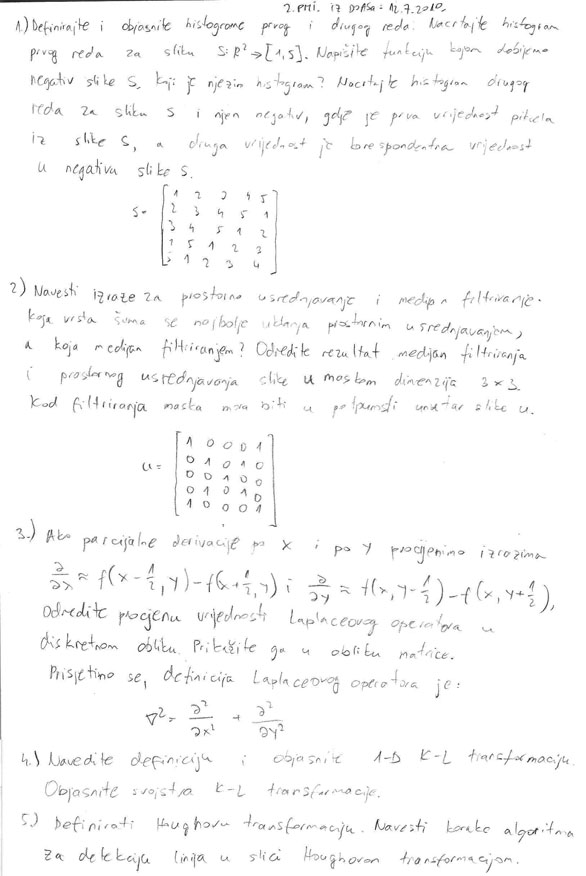 2. PMI. iz DOASa: 12.7.2010.
1.) Definirajte i objasnite histograme prvog i drugog reda. Nacrtajte histogram
prvog reda za sliku S: R² → [1,5]. Napišite funkciju kojom dobijemo
negativ slike S. Koji je njezin histogram? Nacrtajte histogram drugog
reda za sliku S i njen negativ, gdje je prva vrijednost piksela
iz slike S, a druga vrijednost je korespondentna vrijednost
u negativu slike S.
S= [ 1 2 3 4 5
2 3 4 5 1
3 4 5 1 2
5 1 2 3
5 1 2 3 4 ]
2.) Navesti izraze za prostorno usrednjavanje i medijan filtriranje.
Koja vrsta šuma se najbolje uklanja prostornim usrednjavanjem,
a koja medijan filtriranjem? Odredite rezultat medijan filtriranja
i prostornog usrednjavanja slike u maskom dimenzija 3×3.
Kod filtriranja maska mora biti u potpunosti unutar slike u.
u= [ 1 0 0 0 1
0 1 0 1 0
0 0 1 0 0
0 1 0 1 0
1 0 0 0 1 ]
3.) Ako parcijalne derivacije po x i po y procijenimo izrazima
∂/∂x ≈ f(x-1/2, y) - f(x+1/2, y) i ∂/∂y ≈ f(x, y-1/2) - f(x, y+1/2),
Odredite procjenu vrijednosti Laplaceovog operatora u
diskretnom obliku. Prikažite ga u obliku matrice.
Prisjetimo se, definicija Laplaceovog operatora je:
∇² = ∂²/∂x² + ∂²/∂y²
4.) Navedite definiciju i objasnite 1-D K-L transformaciju.
Objasnite svojstva K-L transformacije.
5.) Definirati Houghovu transformaciju. Navesti korake algoritma
za detekciju linija u slici Houghovom transformacijom.